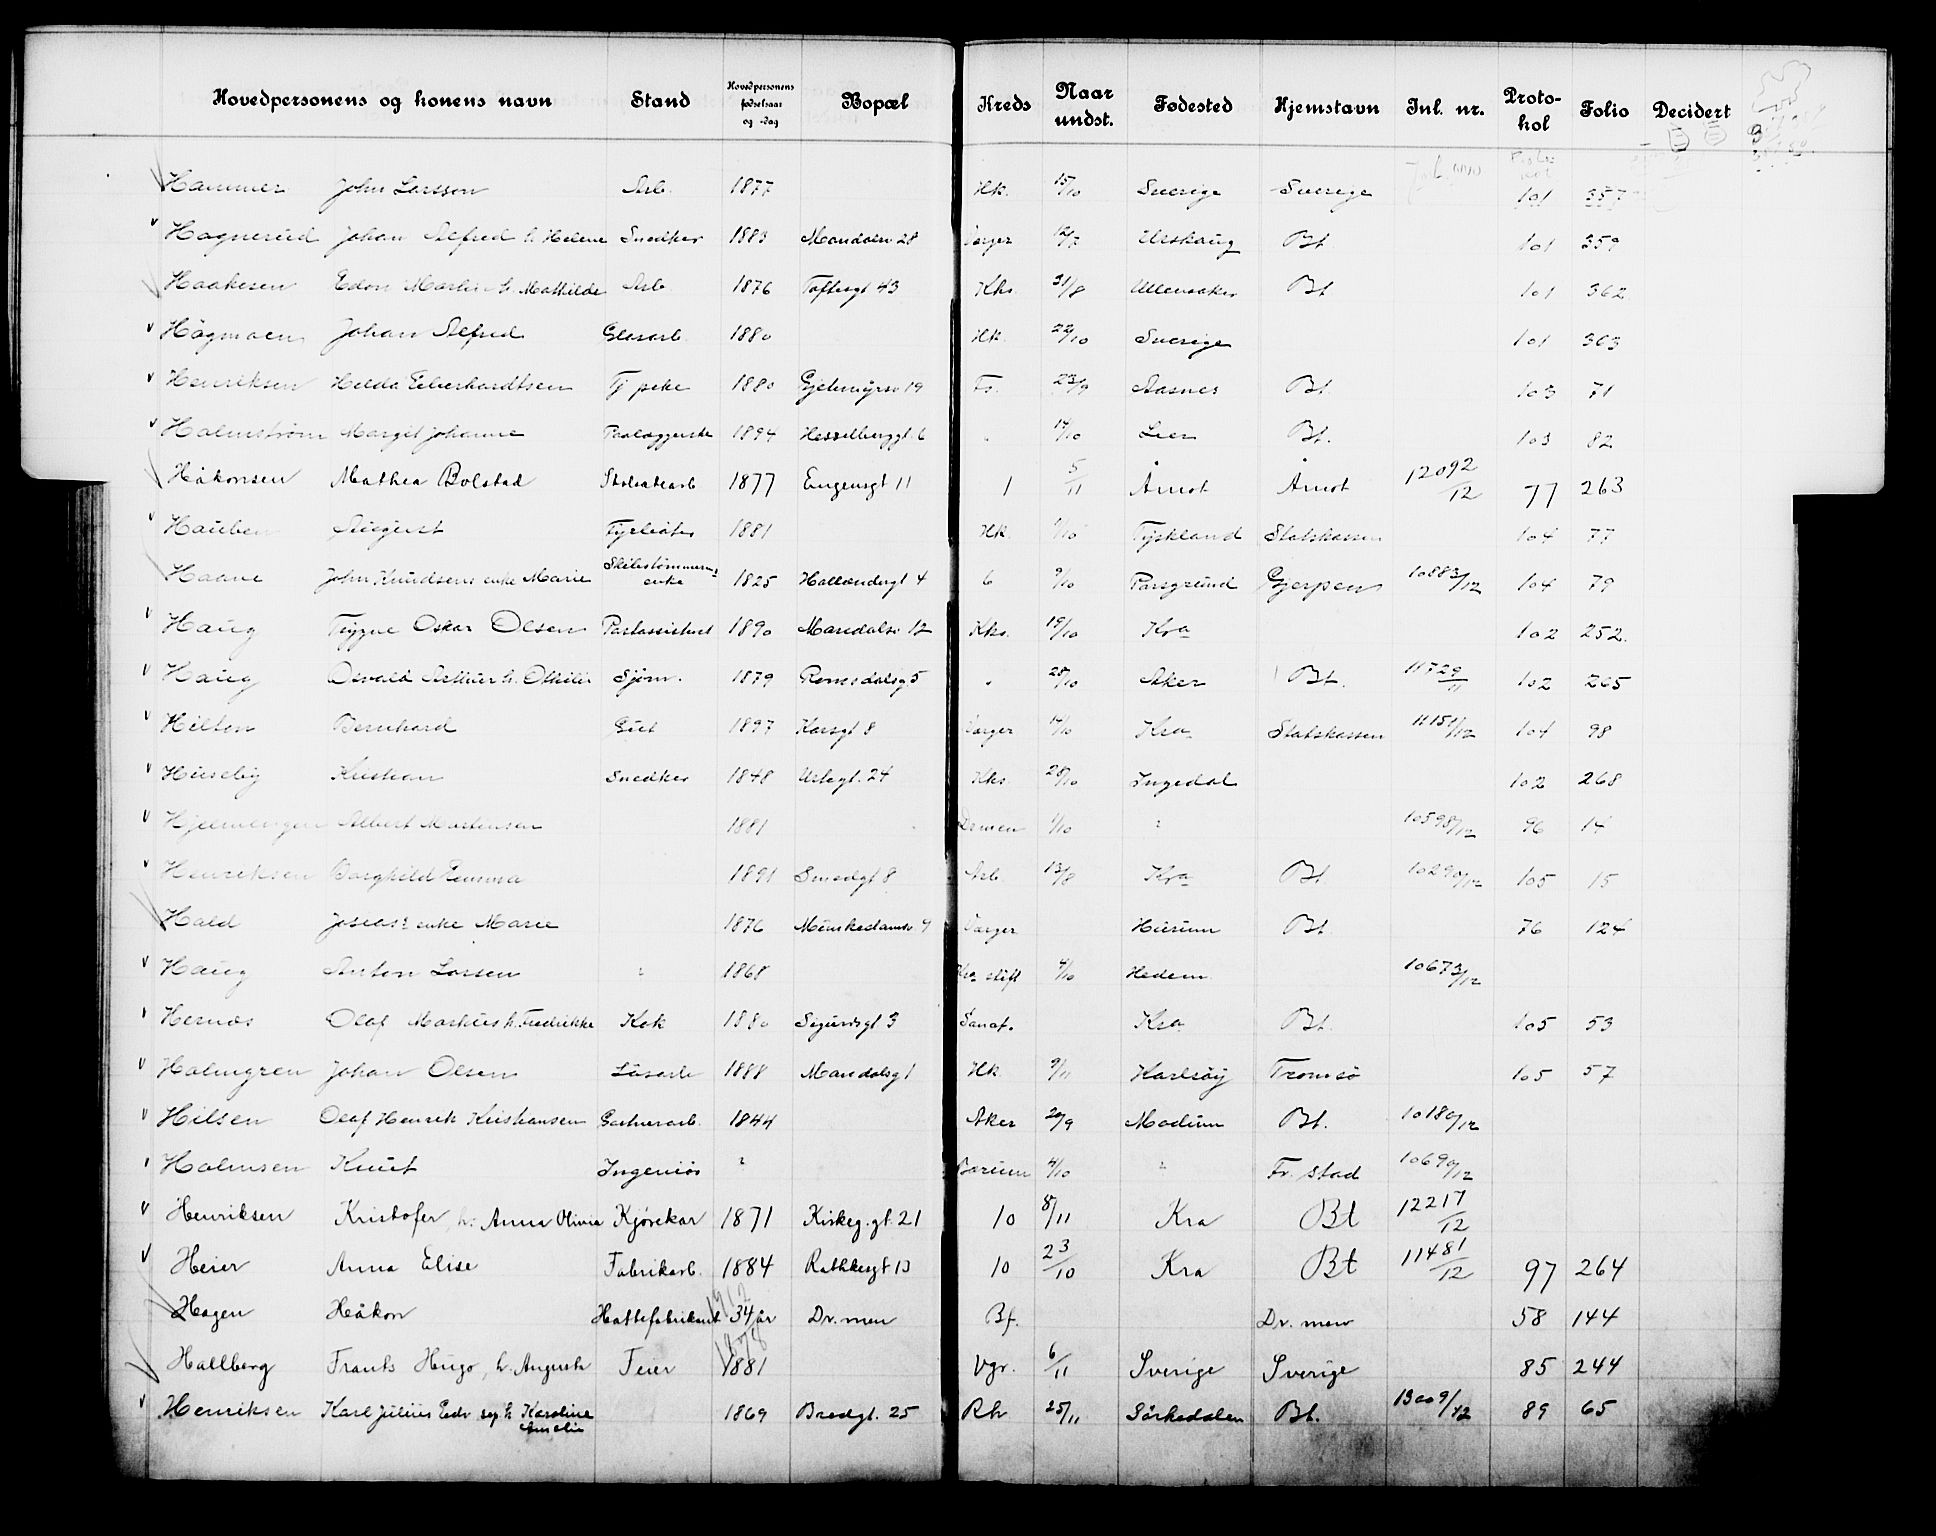 Hovedpersonens og konens navn Stand Hovedpersonens fødselsaar og -dag Bopæl Kreds Naar undst. Fødested Hjemstavn Jnl. nr. Protokol Folio Decidert
Hammer John Larsson Arb. 1877 Hk. 15/10 Sverige Sverige 101 357
Hagnerud Johan Alfred h. Helene Snedker 1883 Maridalsv 28 Varger 12/7 Urskaug Bt. 101 359
Haakesen Edon Martin h. Mathilde Arb. 1876 Toftesgt 43 Khs. 31/8 Ullensaker Bt 101 362
Högmoen Johan Alfred Glasarb. 1880 Hk. 22/10 Sverige 101 363
Henriksen Hilda Eberhardtsen Tj pike 1880 Gjetemyrsv 19 Fs. 23/9 Aasnes Bt. 103 71
Holmstrøm Margit Johanne Paalæggerske 1894 Hesselberggt. 6 " 14/10 Lier Bt. 103 82
Håkonsen Mathea Bolstad Skolearb 1877 Eugensgt 11 1 5/11 Åmot Åmot 12092/12 77 263
Hauben August Fyrbøter 1881 Hk. 9/10 Tyskland Statskassen 104 77
Haave John Knudsens enke Marie Skibstømmerms enke 1825 Hollændergt 4 6 9/10 Porsgrund Gjerpen 10883/12 104 79
Haug Trygve Oskar Olsen Postassistent 1890 Maridalsv 12 Khs. 19/10 Kra 102 252.
Haug Osvald Arthur h. Othilie Sjøm. 1879 Romsdalsg 5 " 28/10 Aker Bt. 11729/11 102 265
Hilton Bernhard Gut 1897 Korsgt 8 Varger 14/10 Kra Statskassen 11151/12 104 98
Huseby Kristian Snedker 1848 Urtegt. 24 Khs. 28/10 Ingedal 102 268
Hjelmengen Albert Martinsen 1881 Drmen 1/10 ? 10598/12 96 14
Henriksen Borghild Emma 1891 Smedgt 8 Arb. 13/8 Kra Bt 10290/12 105 15
Hald Josias' enke Marie 1876 Munkedamsv. 9 Varger Hurum Bt. 76 124
Haug Anton Larsen ? 1868 Kra stift 4/10 Hedem. 10673/12
Hernæs Olaf Markus h. Fredrikke Kok 1880 Sigurdsgt 3 Sanat. Kra Bt. 105 53
Holmgren Johan Olsen Løsarb 1888 Maridalsg 1 Hk. 9/11 Karlsøy Tromsö 105 57
Hilsen Olaf Henrik Kristiansen Gartnerarb. 1844 Aker 20/9 Modum Bt. 10180/12
Holmsen Knut Ingeniør ? Bærum 4/10 ? Fr. stad 10690/12
Henriksen Kristofer, h: Anna Olivia Kjørekar 1871 Kirkeg.gt. 21 10 8/11 Kra Bt 12217/12
Heier Anna Elise Fabrikarb. 1884 Rathkesgt 13 10 23/10 Kra Bt 11481/12 97 264
Hagen Håkon Hattefabrikant 34 år 1912 1878 Dr.men Bf. Dr. men 58 144
Hallberg Frants Hugo, h. Augusta Feier 1881 Vgr. 6/11 Sverige Sverige 85 244
Henriksen Karl Julius Edv. sep. h Karoline Amalie 1869 Bredgt. 25 Rh 25/11 Sörkedalen Bt. 13009/12 89 65